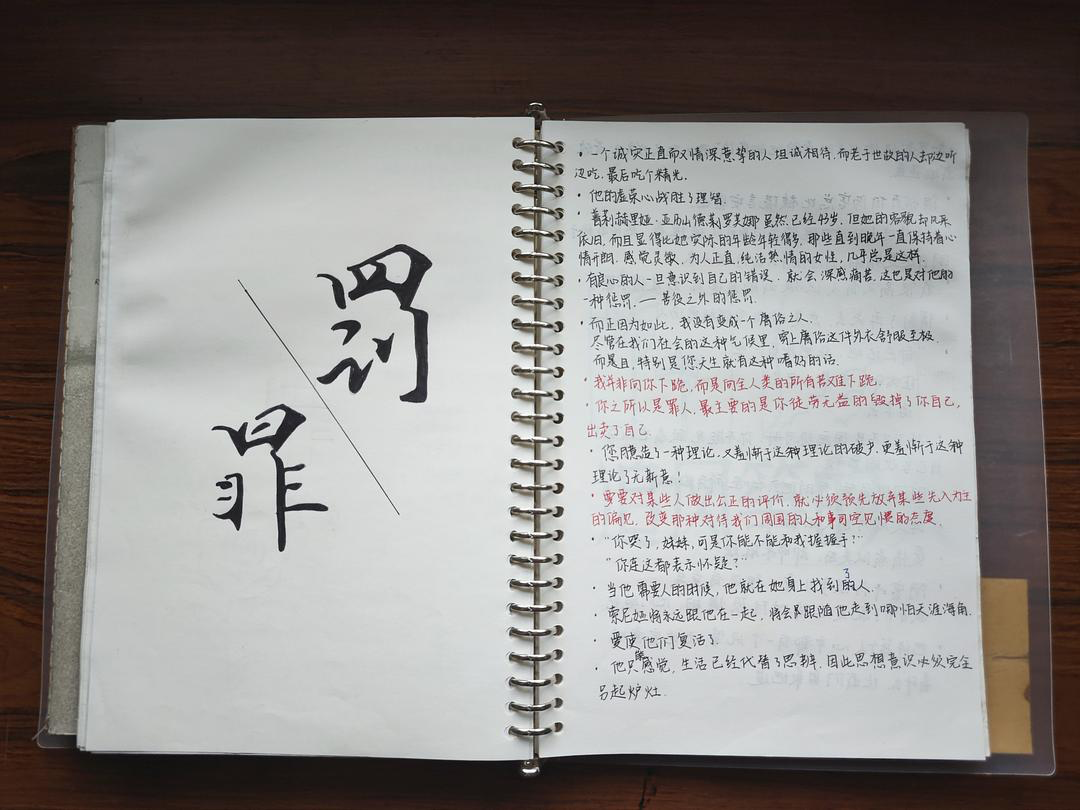 罚
罪
· 一个诚实正直而又情深意挚的人坦诚相待,而老于世故的人却边听
边吃,最后吃个精光.
· 他的虚荣心战胜了理智.
· 普莉赫里娅·亚历山德莉罗芙娜虽然已经43岁,但她的容貌却风采
依旧,而且显得比她实际的年龄年轻得多,那些直到晚年一直保持着心
情开朗、感觉灵敏、为人正直、纯洁热情的女性,几乎总是这样.
· 有良心的人一旦意识到自己的错误,就会深感痛苦.这也是对他的
一种惩罚,——苦役之外的惩罚.
· 而正因为如此,我没有变成一个庸俗之人.
尽管在我们社会的这种气候里,穿上庸俗这件外衣舒服至极.
而是且,特别是您天生就有这种嗜好的话.
· 我并非向你下跪,而是向全人类的所有苦难下跪.
· 你之所以是罪人,最主要的是你徒劳无益的毁掉了你自己,
出卖了自己.
· 您臆造了一种理论,又羞惭于这种理论的破产,更羞惭于这种
理论了无新意!
· 要要对某些人做出公正的评价,就必须预先放弃某些先入为主
的偏见,改变那种对待我们周围的人和事司空见惯的态度.
· “你哭了,妹妹,可是你能不能和我握握手?”
“你连这都表示怀疑?”
· 当他需要人的时候,他就在她身上找到了的人.
· 索尼娅将永远跟他在一起,将会跟随他走到哪怕天涯海角.
· 爱使他们复活了.
· 他只能感觉,生活已经代替了思辨,因此思想意识必须完全
另起炉灶.